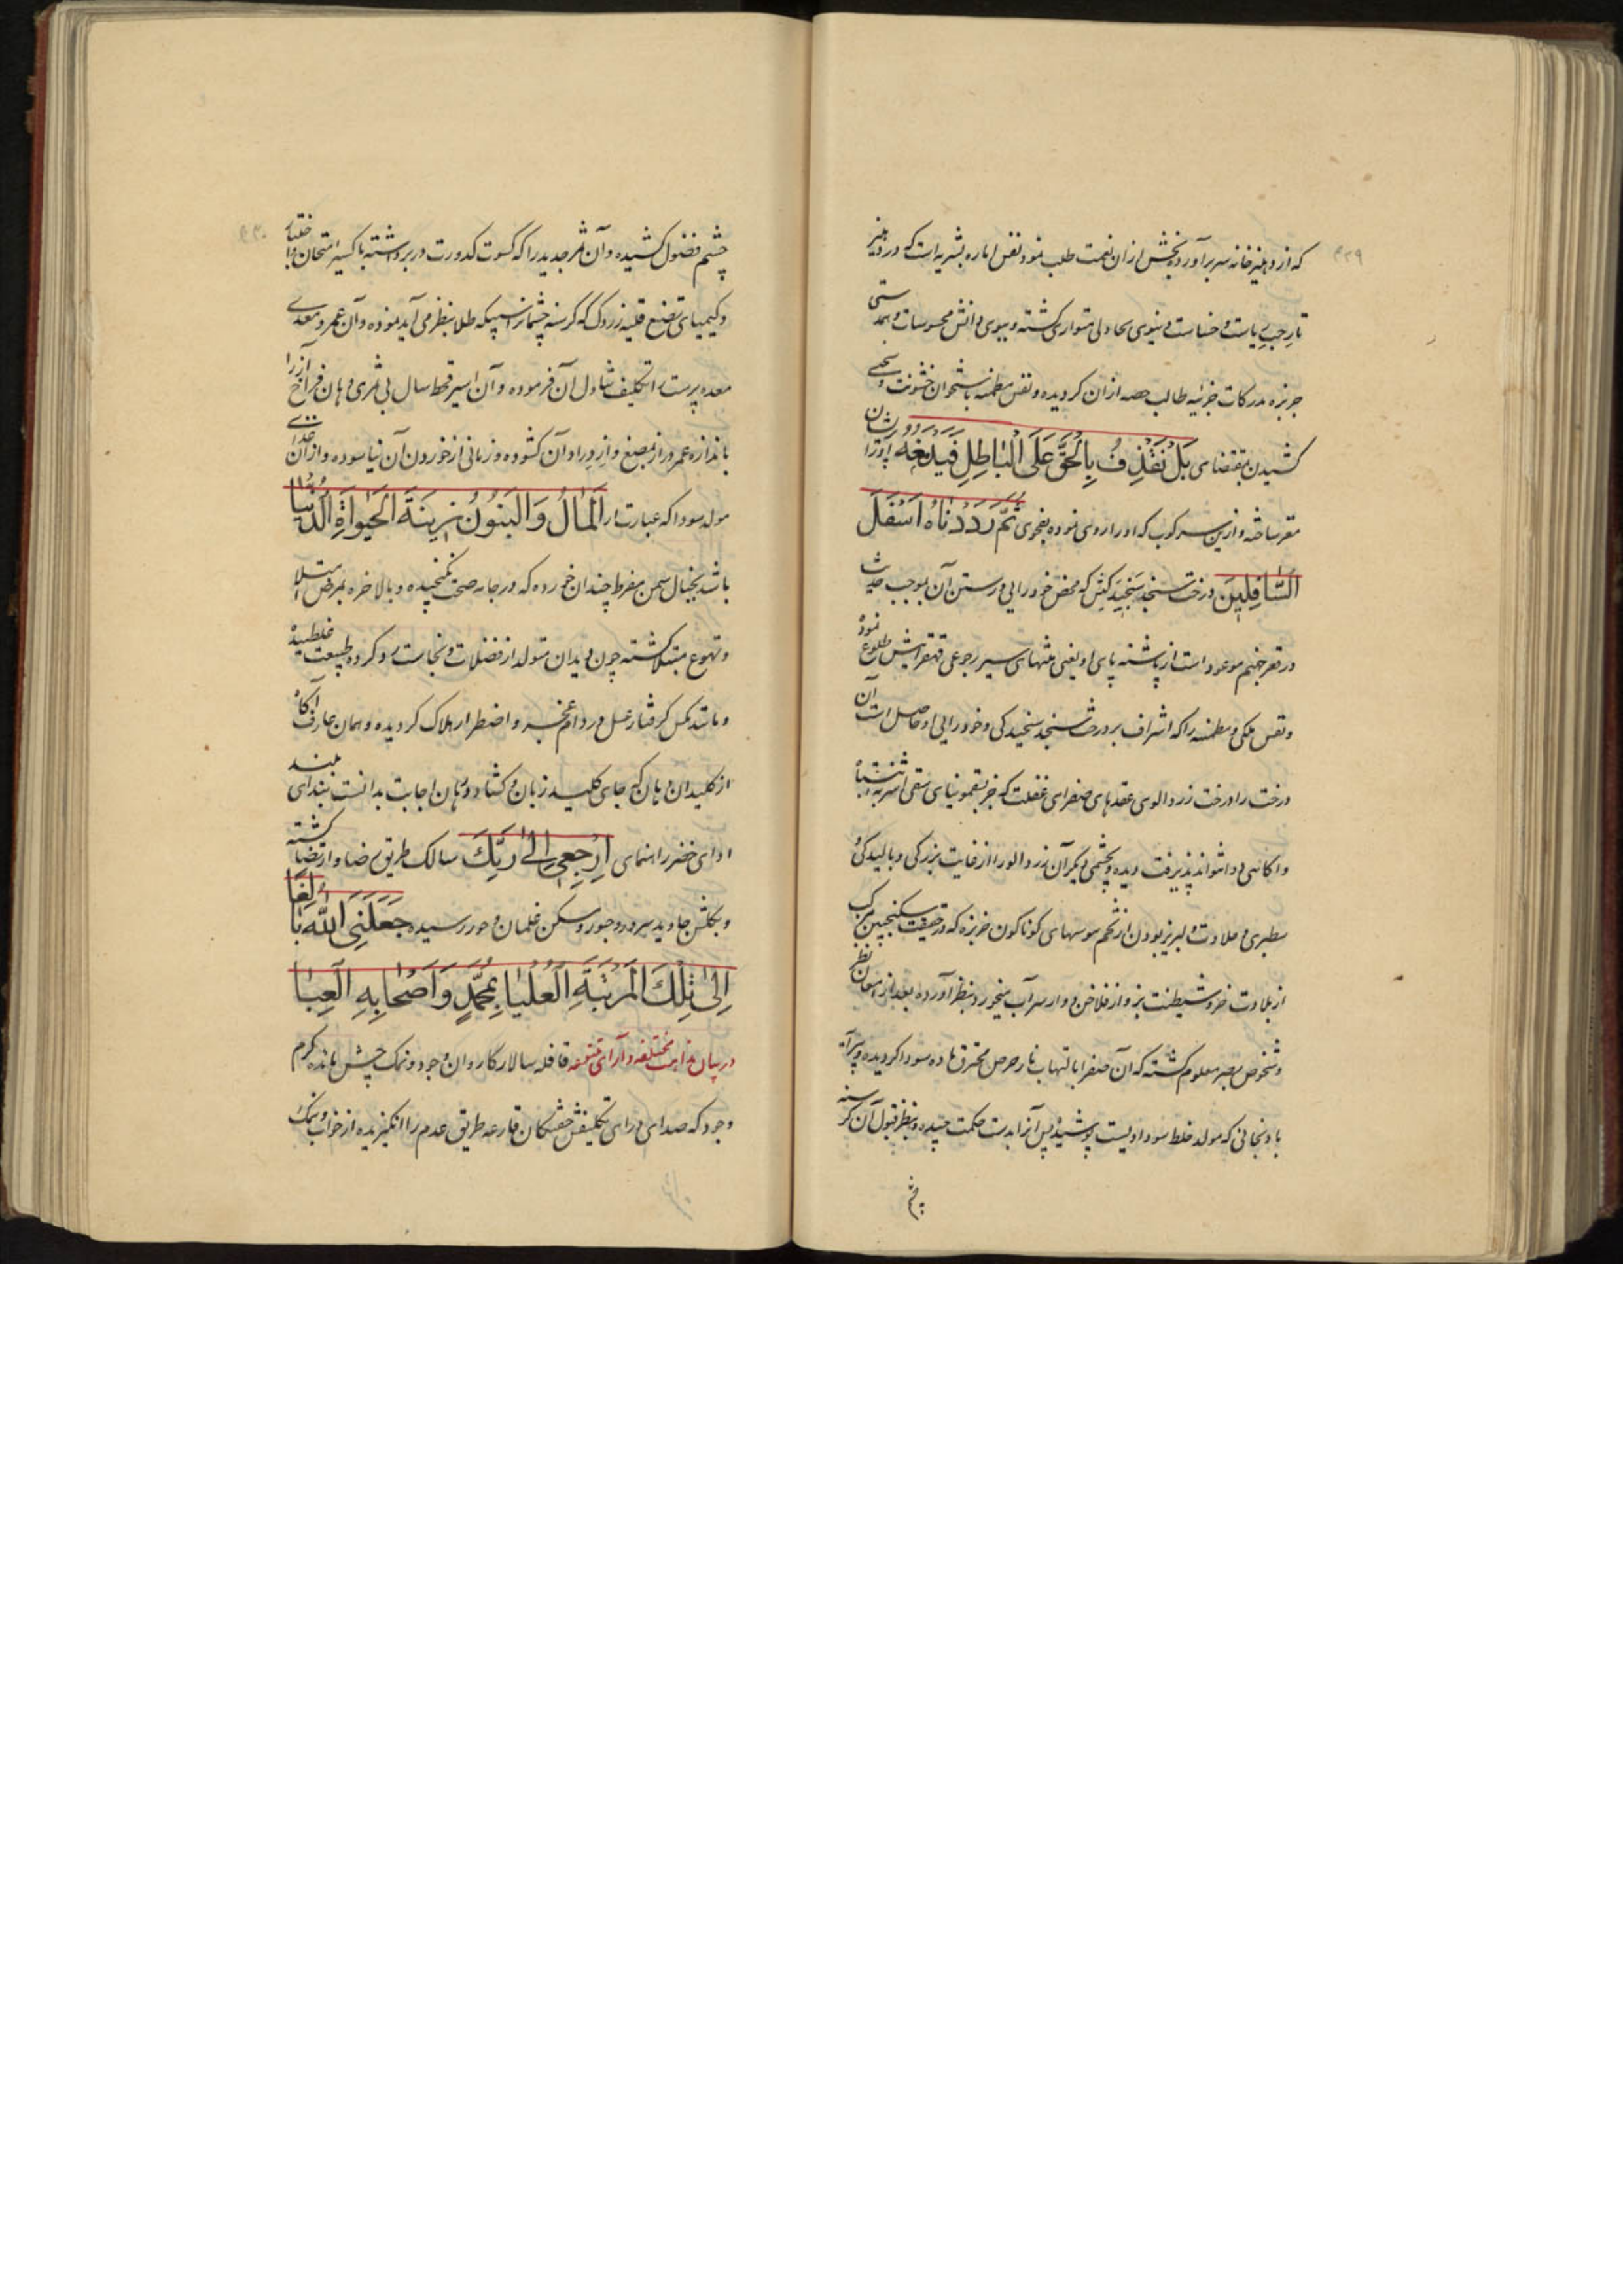 که از دهلیز خانه سر برآورده بخش از آن نعمت طلب نمود نفس اماره بشریه است که در دهلیز
تار حب ریاست و خساست دنیوی متواری گشته و ببوی دانش محسوسات و همدستی
جربزه مدرکات جزئیه طالب حصه از آن گردیده و نفس مطمئنه باستخوان خشونت و سختی
کشیدن بمقتضای بَلْ نَقْذِفُ بِالْحَقِّ عَلَى الْبَاطِلِ فَيَدْمَغُهُ او را
مقر ساخته و ازین سرکوب که او را روی نموده بفحوی ثُمَّ رَدَدْنَاهُ اَسْفَلَ
السَّافِلِينَ درخت سنجد که محض خودرایی و رستن آن بموجب حدیث
در قعر جهنم موعود است از پاشنه پای او یعنی منتهای سیر رجوعی قهقرایش طلوع نموده
و نفس ملکی و مطمئنه را که اشراف بر درخت سنجد سنجیدگی و خودرایی او حاصل است آن
درخت را درخت زردالوی عقدهای صفرای غفلت که جز بسقمونیای سقی اشربه انتباه
و آگاهی دوا نتواند پذیرفت دیده و بچشمی دیگر آن زردالو را از غایت بزرگی و بالیدگی
سطبری و حلاوت و لبریز بودن از تخم هوسهای گوناگون خربزه که در حقیقت سکنجبین مرکب
از بلادت خر و شیطنت بز و از فلاخن و از سرآب میخورد بنظر آورده بعد از امعان نظر
و شخوص بصر معلوم گشته که آن صفرا بالتهاب نار حرص محترق ماده سودا گردیده و پیرایه
بادنجانی که مولد خلط سوداویست پوشیده پس آنرا بدست حکمت چیده و بنظر قبول آن گرسنه
چشم
چشم فضول کشیده و آن ثمر جدید را که کسوت کدورت در بر داشته باکسیر امتحان و اختیار
و کیمیای تصنع قلیه زردک که گرسنه چشمانرا سبیکه طلا بنظر می آید نموده و آن عمرو معدی
معده پرست را تکلیف تناول آن فرموده و آن اسیر قحط سال بی ثمری دهان فراخ آز را
باندازه عمر دراز بمضغ و ازدراد آن گشوده و زمانی از خوردن آن نیاسوده و از آن غذای
مولد سودا که عبارت از اَلْمَالُ وَالْبَنُونُ زِينَةُ الْحَيَوٰةِ الدُّنْيَا
باشد بخیال سمن مفرط چندان خورده که در جامه صحت نگنجیده و بالاخره بمرض امتلا
و تهوع مبتلا گشته چون دیدان متولد از فضلات و نجاست سرد کرده طبیعت غلطیده
و مانند مگس گرفتار عسل در دام عجز و اضطرار هلاک گردیده و همان عارف آگاه
از کلیدان دهان که جای کلید زبان و گشاد دهان اجابت بدانست بندای بلند
ادای خضر راهنمای اِرْجِعِي اِلىٰ رَبِّكَ سالک طریق رضا و ارتضا گشته
و بگلشن جاوید سرور و حبور و مسکن غلمان و حور رسیده جَعَلَنِيَ اللّٰهُ بَالِغًا
اِلىٰ تِلْكَ الْمَرْتَبَةِ الْعُلْيَا بِمُحَمَّدٍ وَاَصْحَابِهِ الْعَبَا
در بیان مذاهب مختلفه و آرای متنوعه قافله سالار کاروان وجود و نمک چش مائده کرم
وجود که صدای درای تکلیفش خفتگان قارعه طریق عدم را انگیزیده از خواب